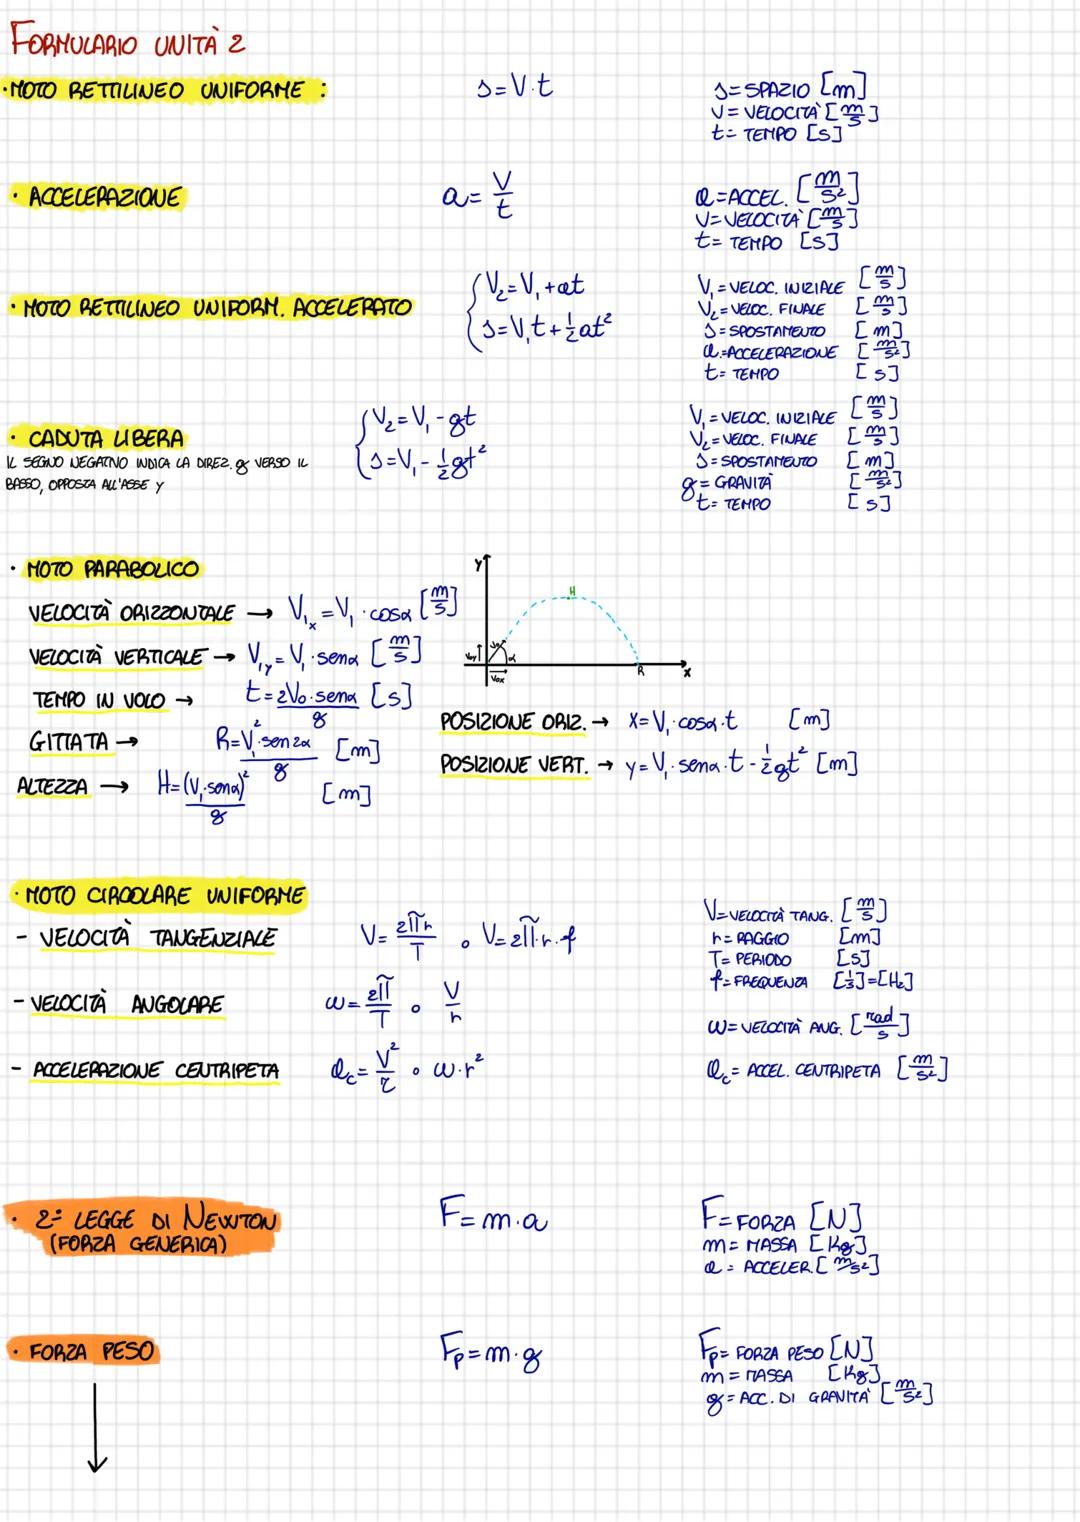 FORMULARIO UNITÀ 2
• MOTO RETTILINEO UNIFORME :
s = V·t
s = SPAZIO [m]
V = VELOCITÀ [m/s]
t = TEMPO [s]
• ACCELERAZIONE
a = V/t
a = ACCEL. [m/s²]
V = VELOCITÀ [m/s]
t = TEMPO [s]
• MOTO RETTILINEO UNIFORM. ACCELERATO
{ V₂ = V₁ + at
s = V₁t + ½at²
V₁ = VELOC. INIZIALE [m/s]
V₂ = VELOC. FINALE [m/s]
s = SPOSTAMENTO [m]
a = ACCELERAZIONE [m/s²]
t = TEMPO [s]
• CADUTA LIBERA
IL SEGNO NEGATIVO INDICA LA DIREZ. g VERSO IL
BASSO, OPPOSTA ALL'ASSE Y
{ V₂ = V₁ - gt
s = V₁ - ½gt²
V₁ = VELOC. INIZIALE [m/s]
V₂ = VELOC. FINALE [m/s]
s = SPOSTAMENTO [m]
g = GRAVITÀ [m/s²]
t = TEMPO [s]
• MOTO PARABOLICO
VELOCITÀ ORIZZONTALE → V₁ₓ = V₁ · cosα [m/s]
VELOCITÀ VERTICALE → V₁ᵧ = V₁ · senα [m/s]
TEMPO IN VOLO → t = 2V₀·senα/g [s]
GITTATA → R = V₁²·sen2α/g [m]
ALTEZZA → H = (V₁·senα)²/g [m]
Y
H
V₀
V₀y
α
V₀x
R
X
POSIZIONE ORIZ. → X = V₁·cosα·t [m]
POSIZIONE VERT. → y = V₁·senα·t - ½gt² [m]
• MOTO CIRCOLARE UNIFORME
- VELOCITÀ TANGENZIALE
V = 2πr/T o V = 2π·r·f
- VELOCITÀ ANGOLARE
ω = 2π/T o V/r
- ACCELERAZIONE CENTRIPETA
a꜀ = V²/r o ω·r²
V = VELOCITÀ TANG. [m/s]
r = RAGGIO [m]
T = PERIODO [s]
f = FREQUENZA [1/s] = [Hz]
ω = VELOCITÀ ANG. [rad/s]
a꜀ = ACCEL. CENTRIPETA [m/s²]
• 2ª LEGGE DI NEWTON
(FORZA GENERICA)
F = m·a
F = FORZA [N]
m = MASSA [Kg]
a = ACCELER. [m/s²]
• FORZA PESO
Fₚ = m·g
Fₚ = FORZA PESO [N]
m = MASSA [Kg]
g = ACC. DI GRAVITÀ [m/s²]